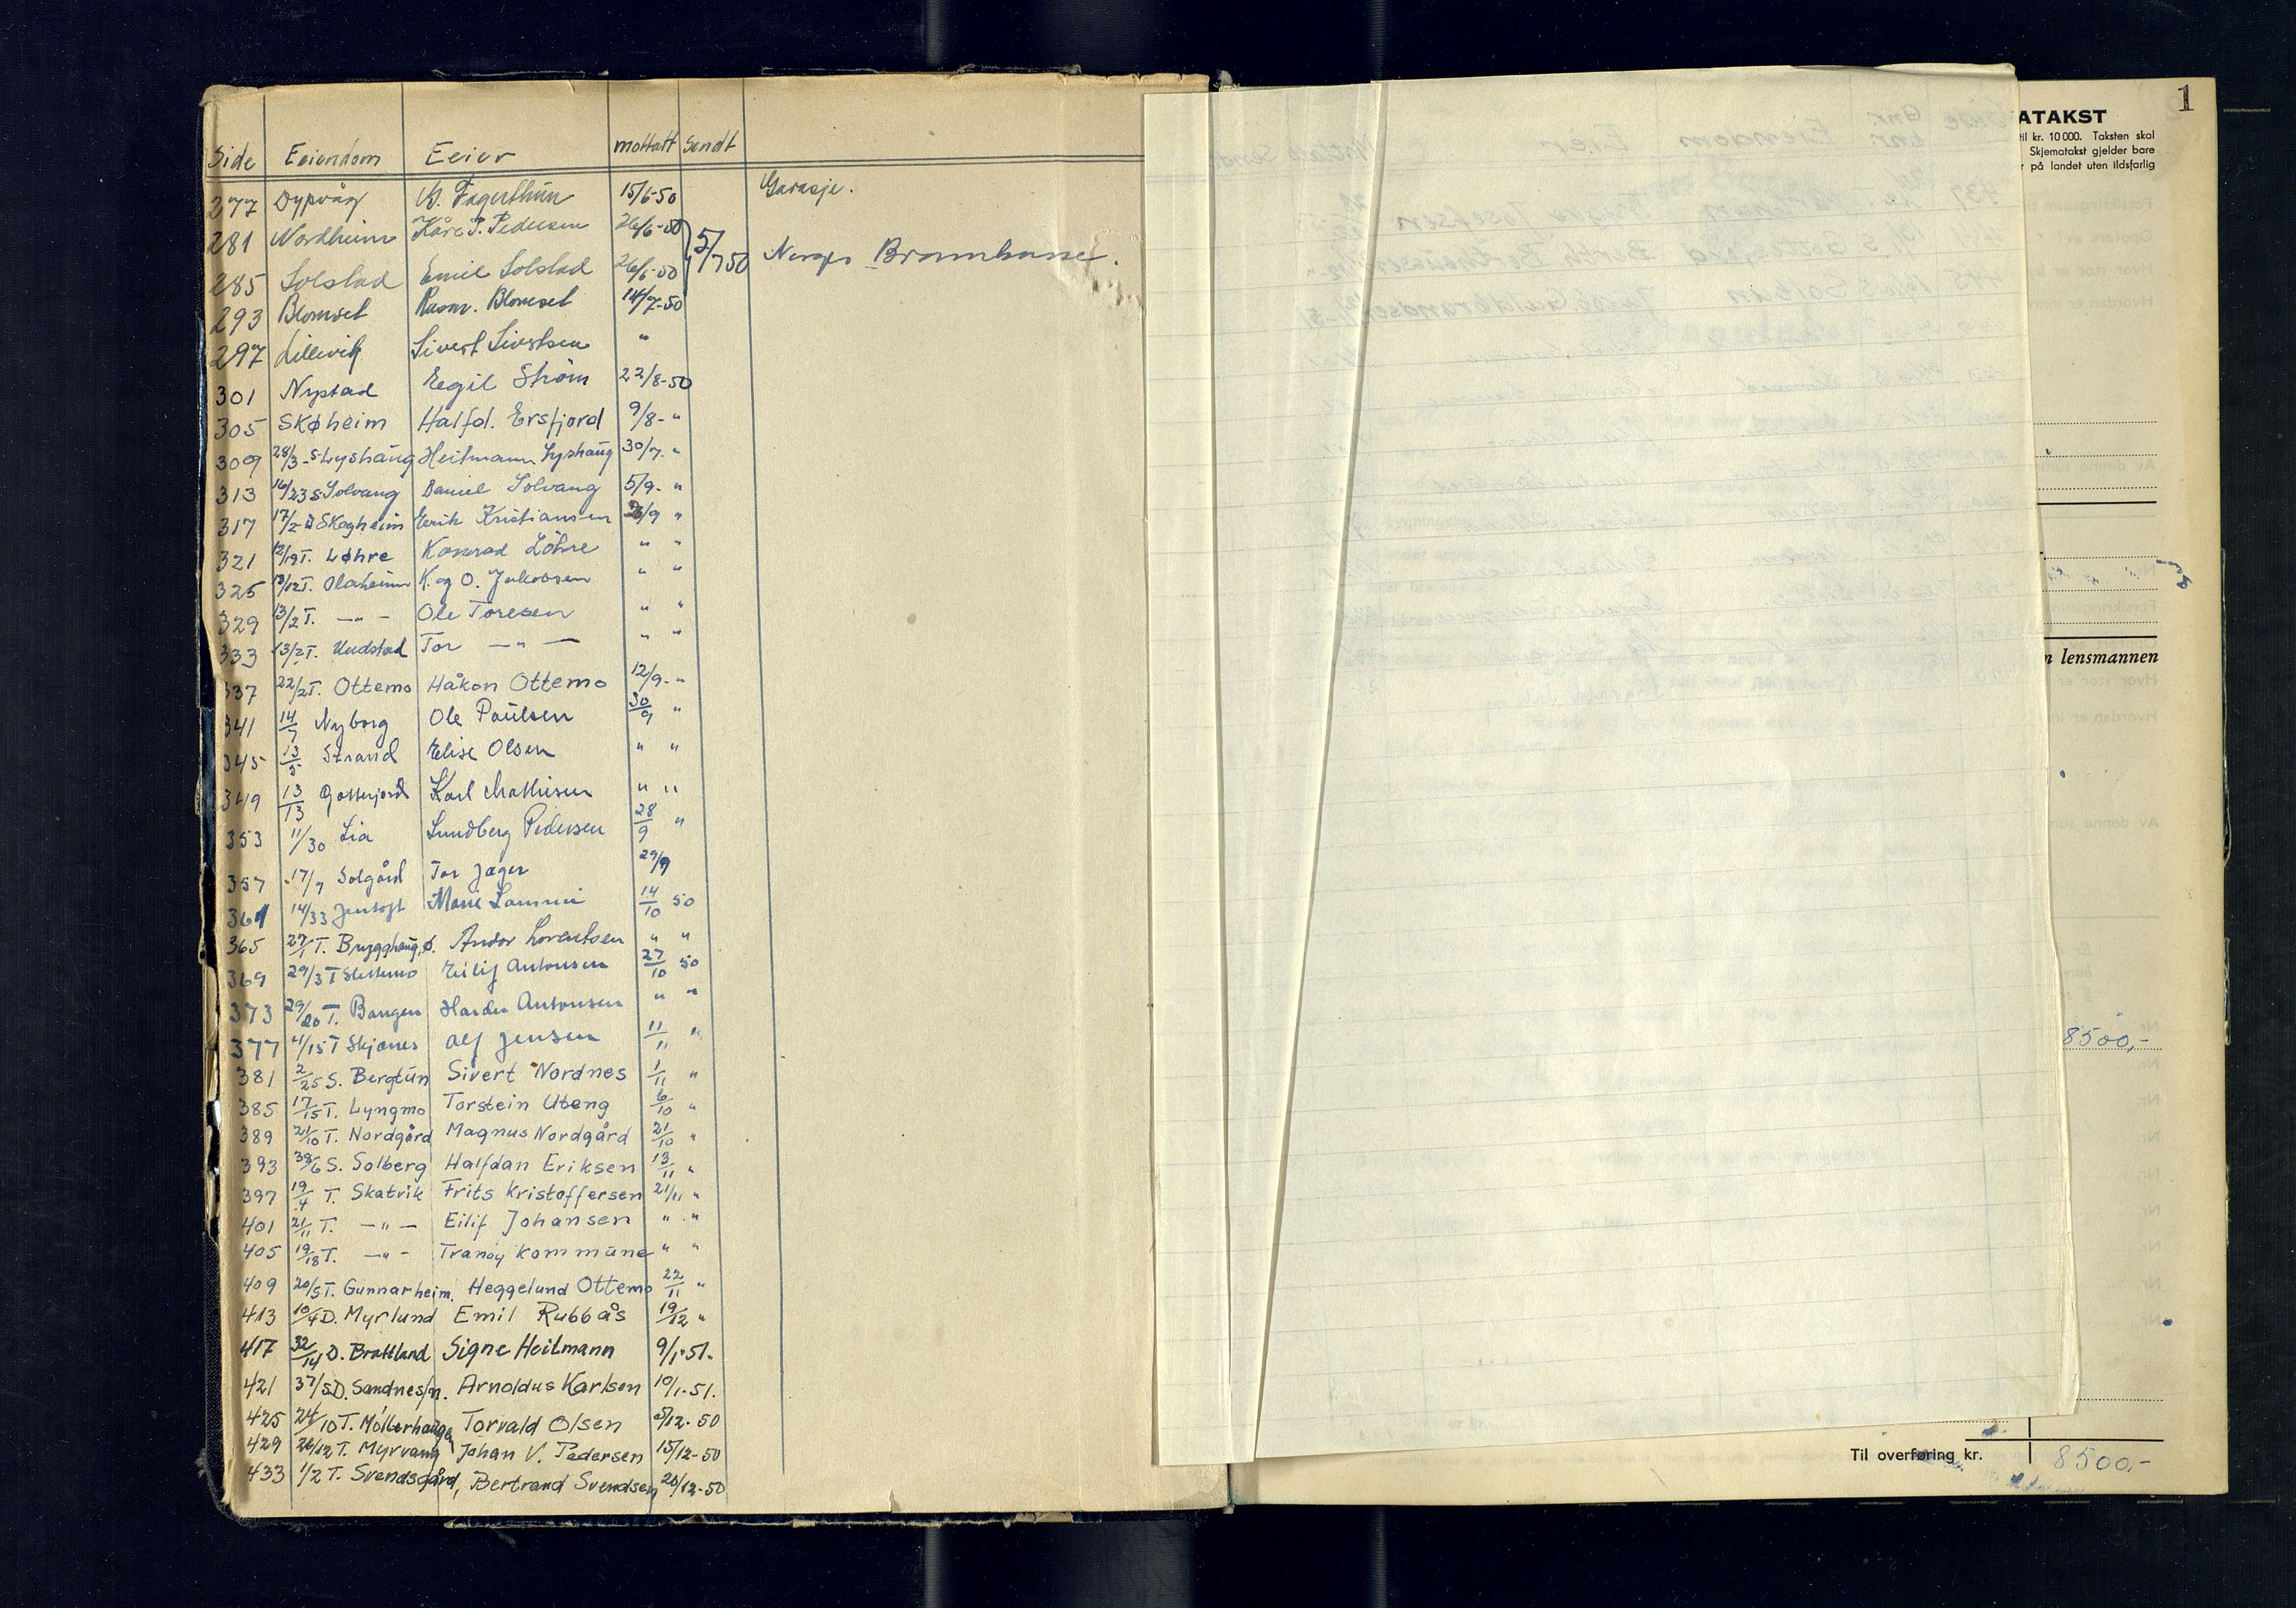 Side Eeiendom Eeier Mottatt Sendt
277 Dypvåg 15/6-50 Garasje.
281 Nordheim Kåre P. Pedersen 26/6-50
5/7 50 Norges Brannkasse.
285 Solstad Emil Solstad 26/6-50
293 Blomset Rasm. Blomset 14/7-50
297 Lillevik Sivert Sivertsen "
301 Nystad Eegil Strøm 22/8-50
305 Skøheim Halfd. Ersfjord 9/8- "
309 28/3-S Lyshaug Heitmann Lyshaug 30/7. "
313 16/23 S Solvang Daniel Solvang 5/9- "
317 17/2 Skogheim Eerik Kristiansen /9 "
321 12/19 T. Løhre Konrad Löhre " "
325 T. Olaheim K. og O. Jakobsen " "
329 13/2 T. —"— Ole Toresen " "
333 13/2 T. Tor —"— " "
337 22/2 T. Ottemo Håkon Ottemo 12/9- "
341 14/7 Nyborg Ole Paulsen 30/9 "
345 13/5 Strand Elise Olsen " "
349 13/13 Karl Mathisen " "
353 11/30 Lia Lundberg Pedersen 28/9 "
357 17/7 Solgård Tor Jager 29/9
361 14/33 Jentoft Marie 14/10 50
365 27/1 T. Brygghaug, ø. Andor Lorentsen " "
369 29/3 T Slettemo Eilif Antonsen 27/10 50
373 29/20 T. Bangen Antonsen " "
377 4/15 T Skjånes Alf Jensen 11/11 "
381 2/25 S. Bergtun Sivert Nordnes 1/11 "
385 17/15 T. Lyngmo Torstein Uteng 6/10 "
389 21/10 T. Nordgård Magnus Nordgård 21/10 "
393 38/6 S. Solberg Halfdan Eriksen 13/11 "
397 19/4 T. Skatvik Frits Kristoffersen 21/11 "
401 21/11 T. —"— Eilif Johansen " "
405 19/18 T. —"— Tranøy kommune " "
409 20/5 T. Gunnarheim. Heggelund Ottemo 22/11 "
413 10/4 D. Myrlund Emil Rubbås 19/12 "
417 32/14 D. Brattland Signe Heitmann 9/1-51.
421 37/5 D. Sandnes/n. Arnoldus Karlsen 10/1-51.
425 24/10 T. Møllerhauge Torvald Olsen 5/12-50
429 26/12 T. Myrvang Johan V. Pedersen 15/12-50
433 1/2 T. Svendsgård, Bertrand Svendsen 20/12-50
1
ATAKST
til kr. 10 000. Taksten skal
Skjematakst gjelder bare
på landet uten ildsfarlig
lensmannen
8500,-
Til overføring kr. 8500,-